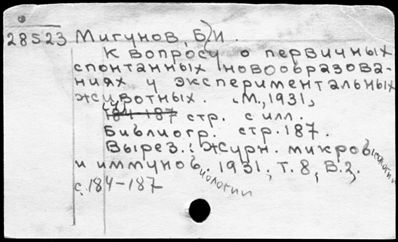 28523 Мигунов, Б. И.
К вопросу о первичных
спонтанных новообразова-
ниях у экспериментальных
животных. М., 1931,
(4) стр. с илл.
184-187
Библиогр. стр. 187.
Вырез.: Журн. микробиологии
и иммунобиологии, 1931, т. 8, в. 2,
с. 184-187